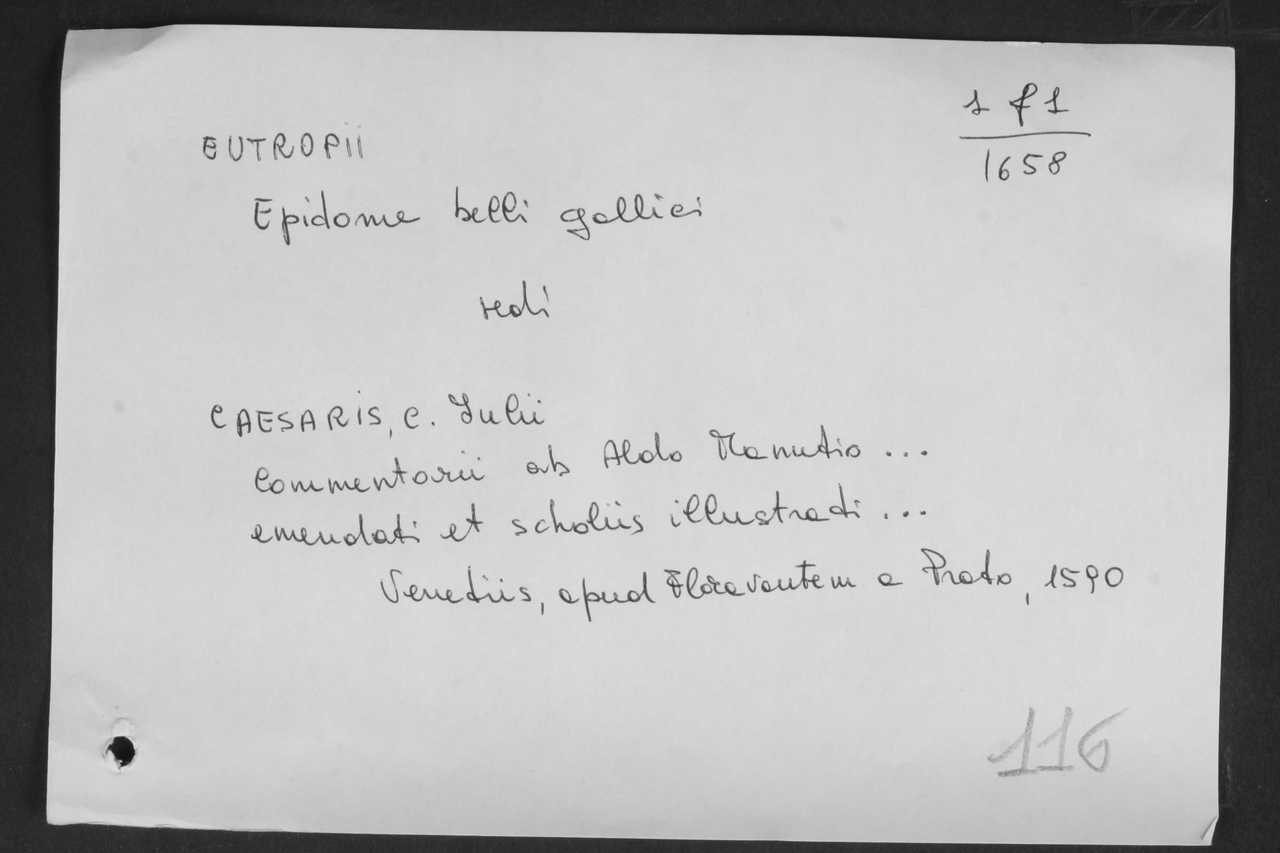 1 f 1
1658
EUTROPII
Epitome belli gallici
vedi
CAESARIS, C. Iulii
Commentarii ab Aldo Manutio ...
emendati et scholiis illustrati ...
Venetiis, apud Floravantem a Prato, 1590
116